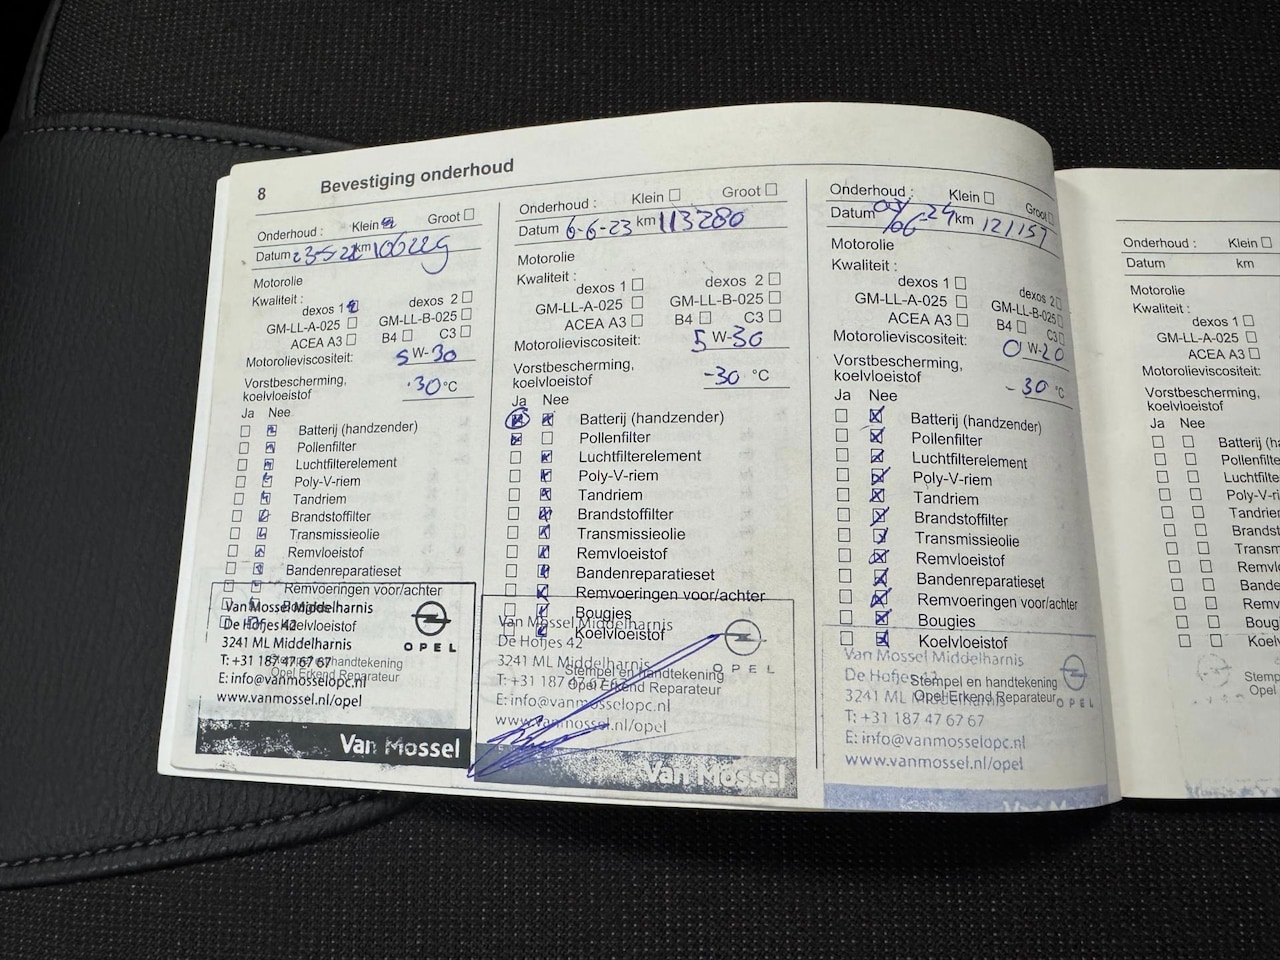 8 Bevestiging onderhoud
Onderhoud : Klein Groot
Datum 23-5-22 km
Motorolie
Kwaliteit :
dexos 1 dexos 2
GM-LL-A-025 GM-LL-B-025
ACEA A3 B4 C3
Motorolieviscositeit: 5 W-30
Vorstbescherming,
koelvloeistof -30 °C
Ja Nee
Batterij (handzender)
Pollenfilter
Luchtfilterelement
Poly-V-riem
Tandriem
Brandstoffilter
Transmissieolie
Remvloeistof
Bandenreparatieset
Remvoeringen voor/achter
Bougies
Koelvloeistof
Stempel en handtekening
Opel Erkend Reparateur
Van Mossel Middelharnis
De Hofjes 42
3241 ML Middelharnis
T: +31 187 47 67 67
E: info@vanmosselopc.nl
www.vanmossel.nl/opel
OPEL
Van Mossel
Onderhoud : Klein Groot
Datum 6-6-23 km 113280
Motorolie
Kwaliteit :
dexos 1 dexos 2
GM-LL-A-025 GM-LL-B-025
ACEA A3 B4 C3
Motorolieviscositeit: 5 W-30
Vorstbescherming,
koelvloeistof -30 °C
Ja Nee
Batterij (handzender)
Pollenfilter
Luchtfilterelement
Poly-V-riem
Tandriem
Brandstoffilter
Transmissieolie
Remvloeistof
Bandenreparatieset
Remvoeringen voor/achter
Bougies
Koelvloeistof
Stempel en handtekening
Opel Erkend Reparateur
Van Mossel Middelharnis
De Hofjes 42
3241 ML Middelharnis
T: +31 187 47 67 67
E: info@vanmosselopc.nl
www.vanmossel.nl/opel
OPEL
Van Mossel
Onderhoud : Klein Groot
Datum 04/06-24 km 121157
Motorolie
Kwaliteit :
dexos 1 dexos 2
GM-LL-A-025 GM-LL-B-025
ACEA A3 B4 C3
Motorolieviscositeit: 0 W-20
Vorstbescherming,
koelvloeistof -30 °C
Ja Nee
Batterij (handzender)
Pollenfilter
Luchtfilterelement
Poly-V-riem
Tandriem
Brandstoffilter
Transmissieolie
Remvloeistof
Bandenreparatieset
Remvoeringen voor/achter
Bougies
Koelvloeistof
Stempel en handtekening
Opel Erkend Reparateur
Van Mossel Middelharnis
De Hofjes 42
3241 ML Middelharnis
T: +31 187 47 67 67
E: info@vanmosselopc.nl
www.vanmossel.nl/opel
OPEL
Van Mossel
Onderhoud : Klein
Datum km
Motorolie
Kwaliteit :
dexos 1
GM-LL-A-025
ACEA A3
Motorolieviscositeit:
Vorstbescherming,
koelvloeistof
Ja Nee
Batterij (ha
Pollenfilte
Luchtfilte
Poly-V-ri
Tandrie
Brandst
Transm
Remvl
Bande
Remv
Boug
Koel
Stemp
Opel